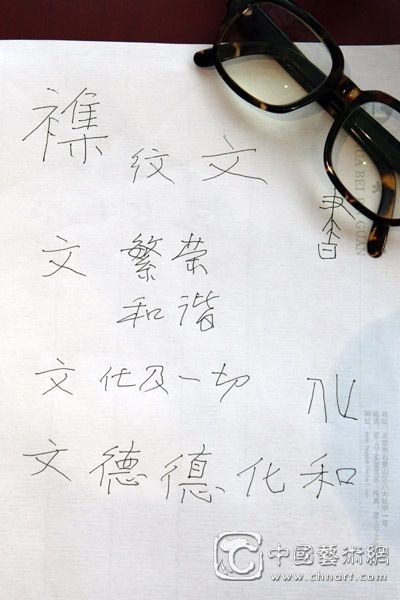 襍
纹 文
文 繁荣
和谐
文 化及一切
文 德 德 化 和
BEI
GUAN
中國藝術網
www.chnart.com